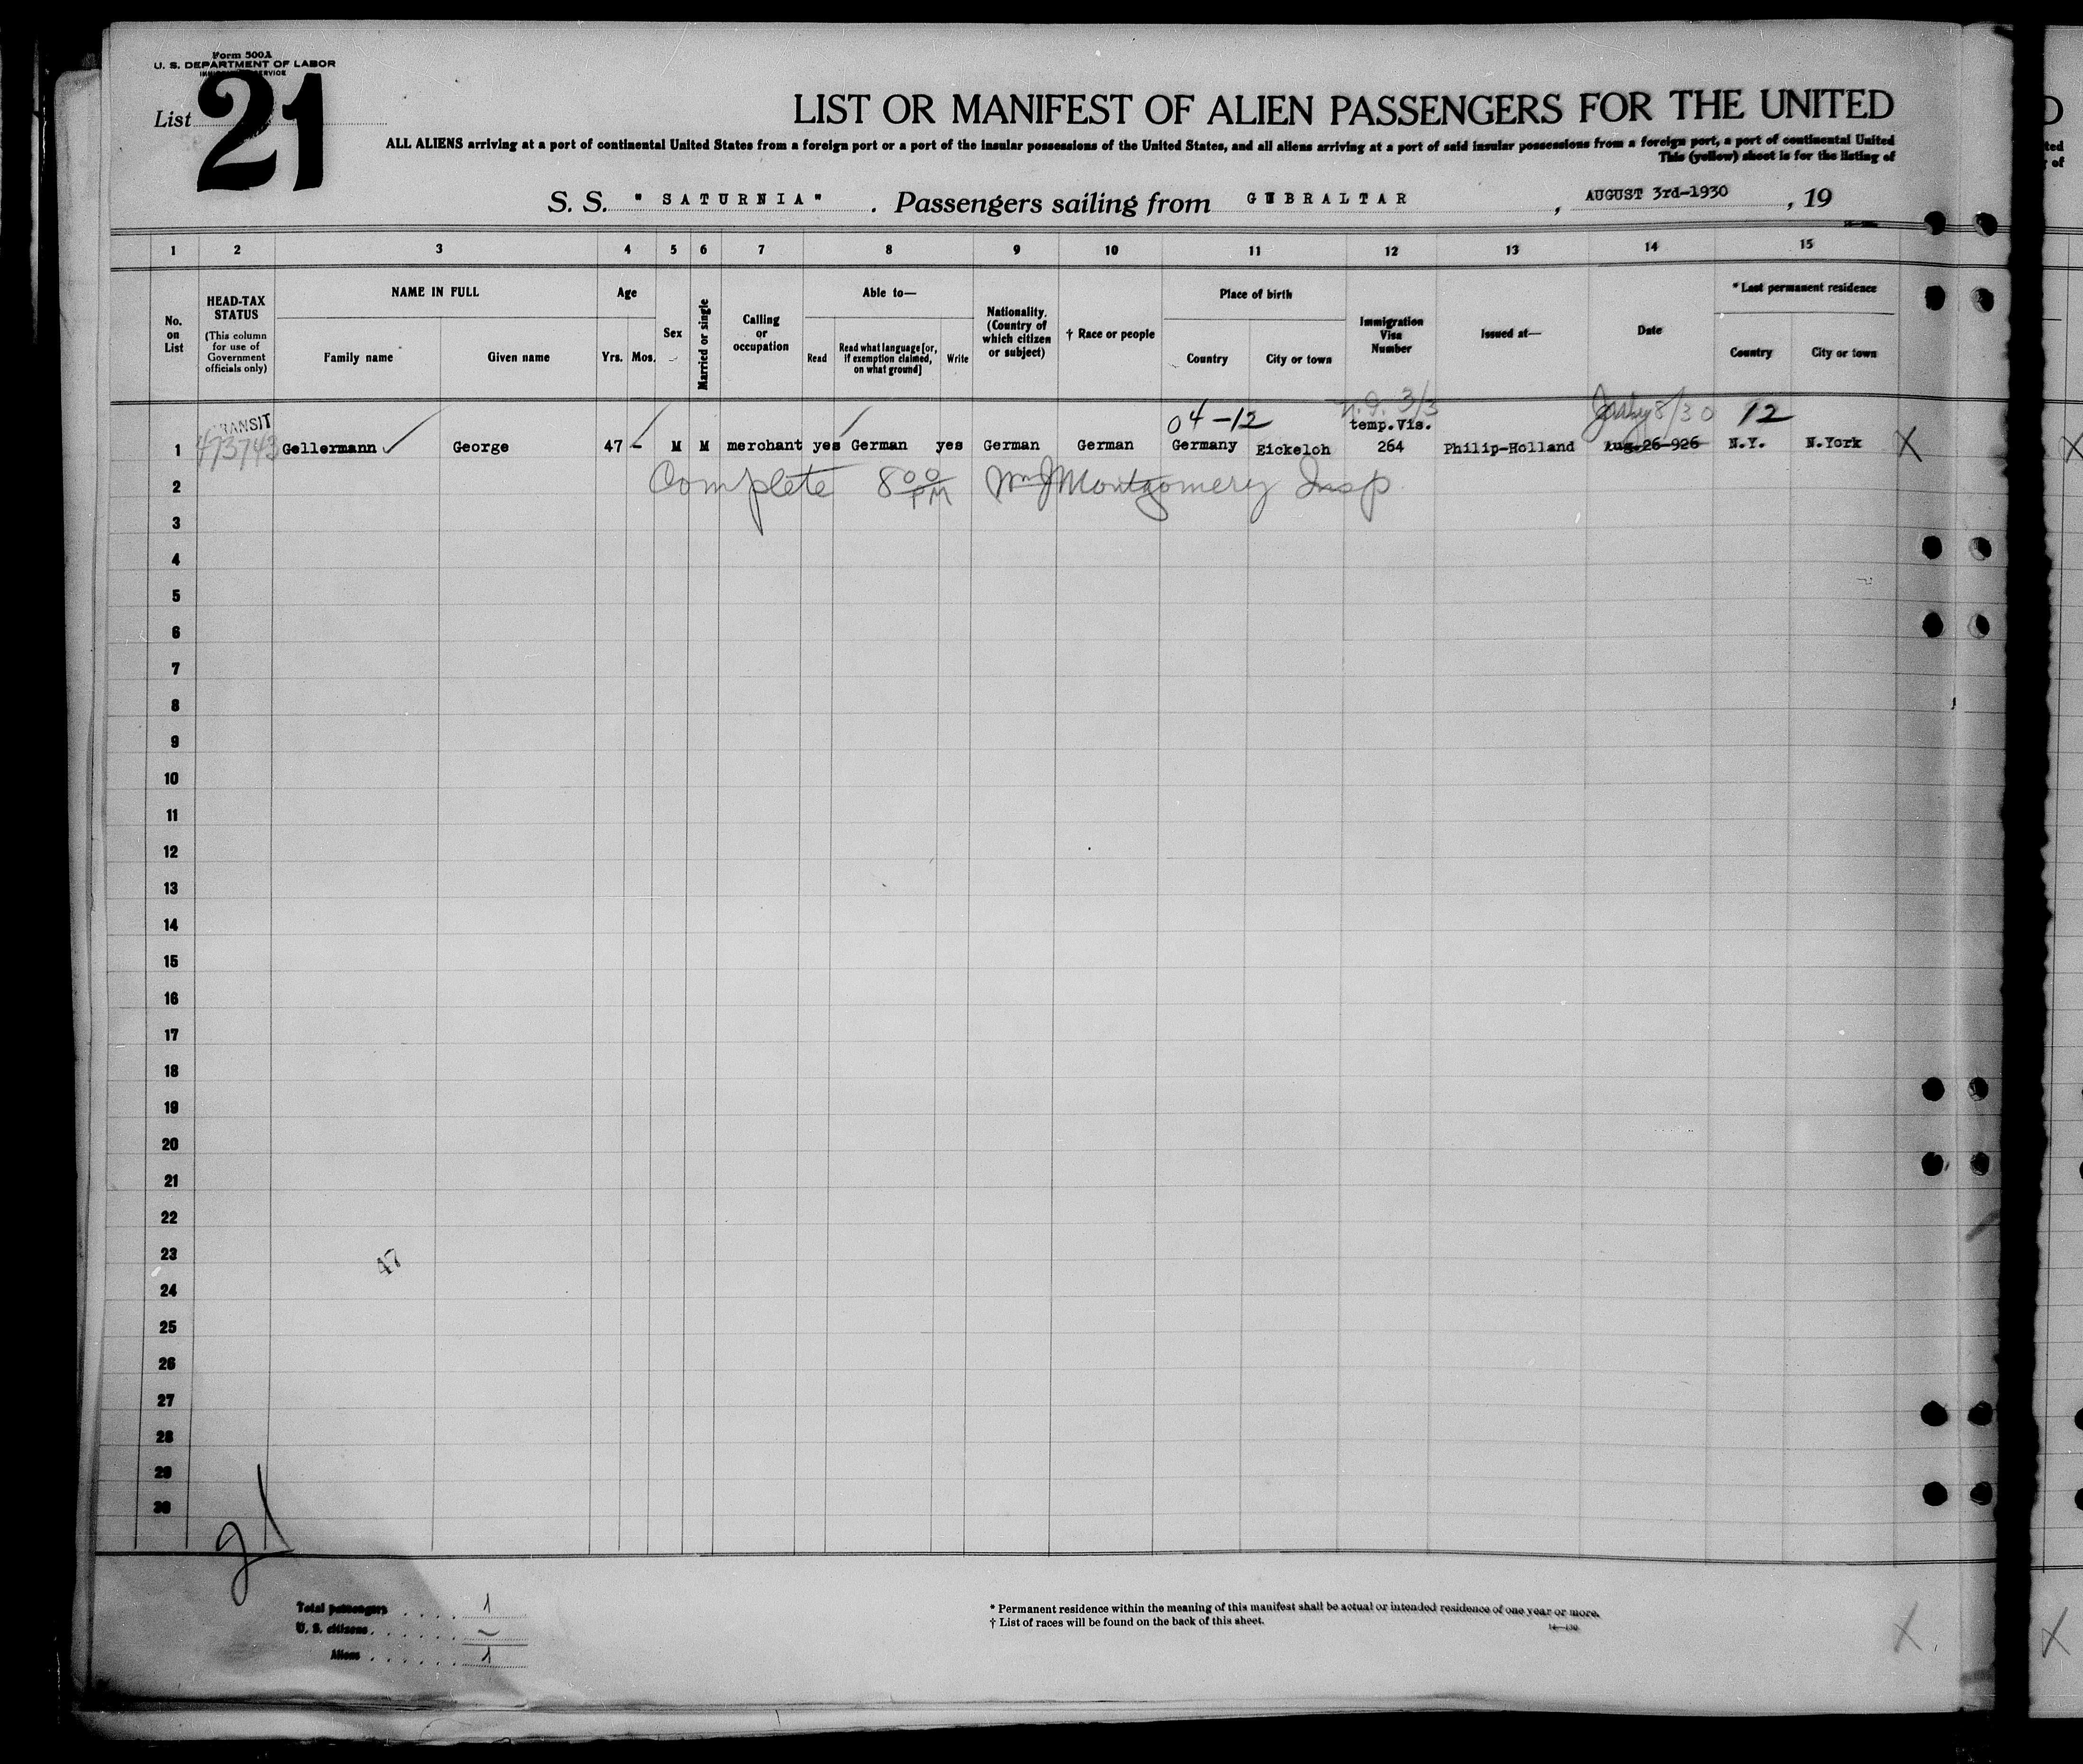 Form 500A
U. S. DEPARTMENT OF LABOR
List 21
LIST OR MANIFEST OF ALIEN PASSENGERS FOR THE UNITED
ALL ALIENS arriving at a port of continental United States from a foreign port or a port of the insular possessions of the United States, and all aliens arriving at a port of said insular possessions from a foreign port, a port of continental United
This (yellow) sheet is for the listing of
S. S. "SATURNIA". Passengers sailing from GIBRALTAR, AUGUST 3rd-1930, 19
1 2 3 4 5 6 7 8 9 10 11 12 13 14 15
No. on List
HEAD-TAX STATUS (This column for use of Government officials only)
NAME IN FULL Family name Given name
Age Yrs. Mos.
Sex
Married or single
Calling or occupation
Able to— Read Read what language [or, if exemption claimed, on what ground] Write
Nationality. (Country of which citizen or subject)
† Race or people
Place of birth Country City or town
Immigration Visa Number
Issued at—
Date
* Last permanent residence Country City or town
TRANSIT 04-12 3/3 8/30 12
temp.Vis.
1 473743 Gellermann George 47 - M M merchant yes German yes German German Germany Eickeloh 264 Philip-Holland Aug.26-926 N.Y. N.York X
2 Complete 8 00 PM Wm J Montgomery Insp.
3
4
5
6
7
8
9
10
11
12
13
14
15
16
17
18
19
20
21
22
23
47
24
25
26
27
28
29
30
Total passengers . . . . 1
U. S. citizens . . . . . . –
Aliens . . . . . . 1
* Permanent residence within the meaning of this manifest shall be actual or intended residence of one year or more.
† List of races will be found on the back of this sheet.
X
X